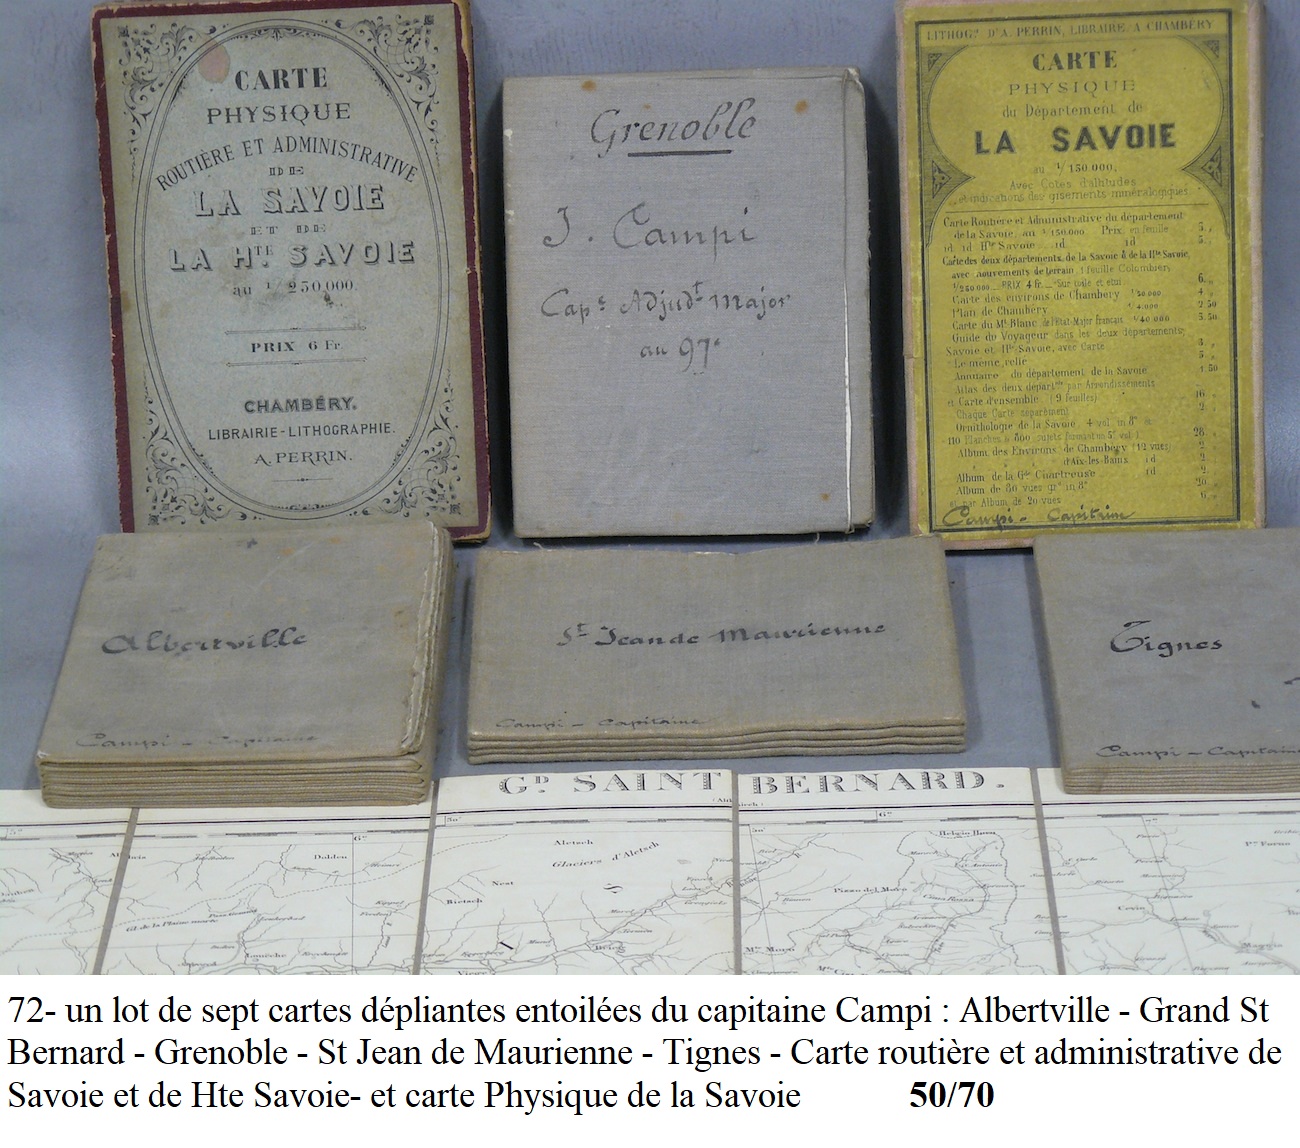 CARTE
PHYSIQUE
ROUTIÈRE ET ADMINISTRATIVE
DE
LA SAVOIE
ET DE
LA HTE SAVOIE
au 1/250.000.
PRIX 6 Fr.
CHAMBÉRY.
LIBRAIRIE-LITHOGRAPHIE.
A. PERRIN.
Grenoble
J. Campi
Cape Adjudt Major
au 97e
LITHOGie D'A. PERRIN, LIBRAIRE, A CHAMBÉRY
CARTE
PHYSIQUE
du Département de
LA SAVOIE
au 1/150 000,
Avec Cotes d'altitudes
et indications des gisements minéralogiques
Carte Routière et Administrative du département
de la Savoie, au 1/150.000 Prix en feuille 5.,
id id Hte Savoie id. id 5.,
Carte des deux départements de la Savoie & de la Hte Savoie,
avec mouvements de terrain, 1 feuille Colombier,
1/250 000 _ PRIX 4 Fr. _ Sur toile et étui 6.,
Carte des environs de Chambéry 1/50 000 4.,
Plan de Chambéry 1/4.000 2 50
Carte du Mt Blanc de l'Etat-Major français 1/40 000 3.50
Guide du Voyageur dans les deux départements,
Savoie et Hte Savoie, avec Carte 3.,
Le même, relié
Annuaire du département de la Savoie 1.50
Atlas des deux départts par Arrondissements
et Carte d'ensemble (9 feuilles) 16
Chaque Carte séparément 2.
Ornithologie de la Savoie 4 vol. in 8°
110 Planches 28
Album des Environs de Chambéry (12 vues) 2
d'Aix-les-Bains id 2
Album de la Gde Chartreuse id 2
Album de 80 vues in 8° 20
Album de 20 vues 6
Campi - Capitaine
Albertville
Campi - Capitaine
St Jean de Maurienne
Campi - Capitaine
Tignes
Campi - Capitaine
GD. SAINT BERNARD.
6
Aletsch
Glaciers d'Aletsch
Dalden
Nest
Rietsch
Gl de la Plaine morte
Pizzo del Moro
Brieg
Viège
72- un lot de sept cartes dépliantes entoilées du capitaine Campi : Albertville - Grand St
Bernard - Grenoble - St Jean de Maurienne - Tignes - Carte routière et administrative de
Savoie et de Hte Savoie- et carte Physique de la Savoie 50/70